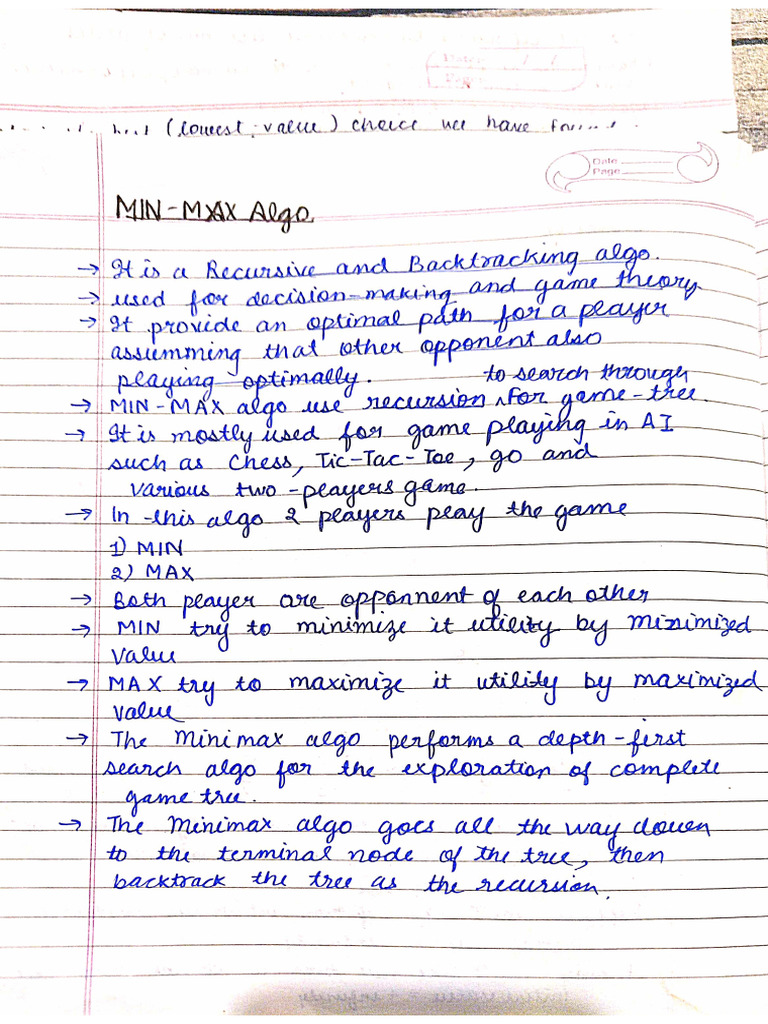 Date
Page
(lowest value) choice we have
Date
Page
MIN-MAX Algo
→ It is a Recursive and Backtracking algo.
→ used for decision-making and game theory
→ It provide an optimal path for a player
assumming that other opponent also
playing optimally.
→ MIN-MAX algo use recursion to search through for game-tree.
→ It is mostly used for game playing in AI
such as Chess, Tic-Tac-Toe, go and
various two-players game.
→ In this algo 2 players play the game
1) MIN
2) MAX
→ Both player are opponnent of each other
→ MIN try to minimize it utility by minimized
value
→ MAX try to maximize it utility by maximized
value
→ The Minimax algo performs a depth-first
search algo for the exploration of complete
game tree.
→ The Minimax algo goes all the way down
to the terminal node of the tree, then
backtrack the tree as the recursion.